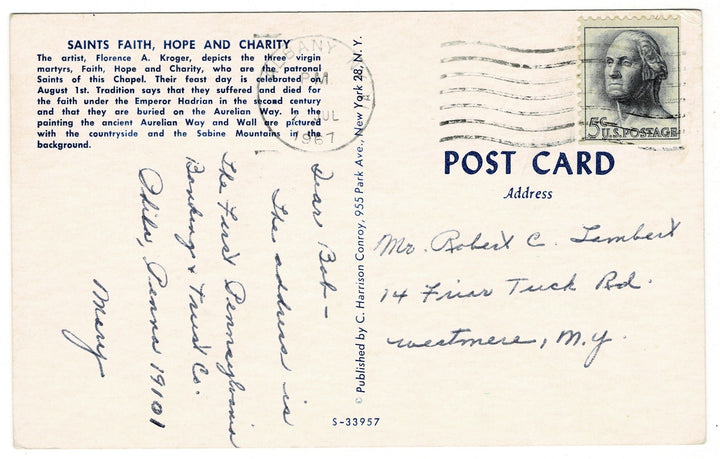 SAINTS FAITH, HOPE AND CHARITY
The artist, Florence A. Kroger, depicts the three virgin
martyrs, Faith, Hope and Charity, who are the patronal
Saints of this Chapel. Their feast day is celebrated on
August 1st. Tradition says that they suffered and died for
the faith under the Emperor Hadrian in the second century
and that they are buried on the Aurelian Way. In the
painting the ancient Aurelian Way and Wall are pictured
with the countryside and the Sabine Mountains in the
background.
ALBANY
P.M.
JUL
1967
5¢ U.S. POSTAGE
POST CARD
Address
Dear Bob—
The address is
The First Pennsylvania
Banking & Trust Co.
Phila, Penna 19101
Mary
© Published by C. Harrison Conroy, 955 Park Ave., New York 28, N.Y.
Mr. Robert C. Lambert
14 Friar Tuck Rd.
Westmere, N.Y.
S-33957